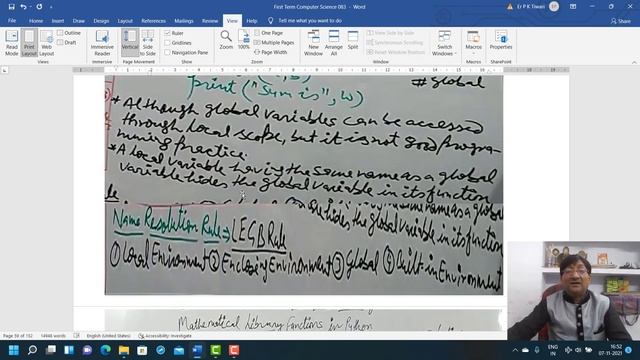 First Term Computer Science 083 - Word
Er P K Tiwari
File Home Insert Draw Design Layout References Mailings Review View Help Tell me what you want to do
Read Mode
Print Layout
Web Layout
Outline
Draft
Immersive Reader
Vertical
Side to Side
Ruler
Gridlines
Navigation Pane
Zoom
100%
One Page
Multiple Pages
Page Width
New Window
Arrange All
Split
View Side by Side
Synchronous Scrolling
Reset Window Position
Switch Windows
Macros
Properties
Views
Immersive
Page Movement
Show
Zoom
Window
Macros
SharePoint
#global
print("Sum is", w)
* Although global variables can be accessed
through local scope, but it is not good progra-
mming practice.
* A local variable having the same name as a global
variable hides the global variable in its function
hides the global variable in its function
Name Resolution Rule => LEGB Rule
① Local Environment ② Enclosing Environment ③ Global ④ Built in Environment
Mathematical Library Functions in Python
Page 59 of 152 14946 words English (United States) Accessibility: Investigate
ENG
IN
16:52
07-11-2022